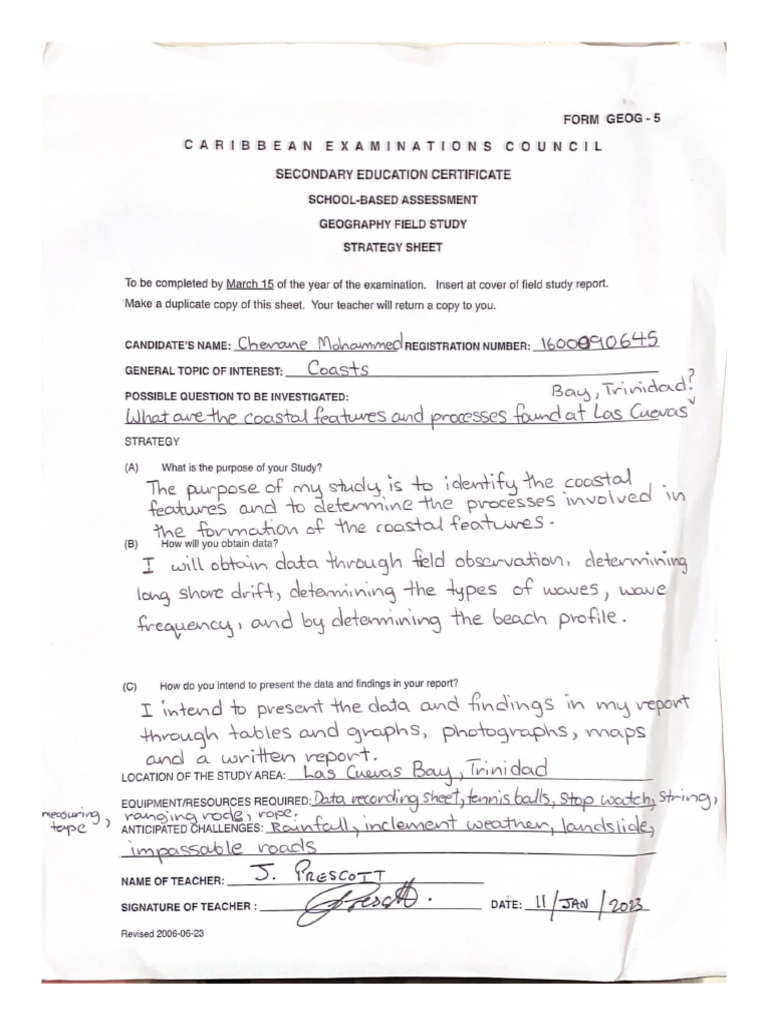 FORM GEOG - 5
CARIBBEAN EXAMINATIONS COUNCIL
SECONDARY EDUCATION CERTIFICATE
SCHOOL-BASED ASSESSMENT
GEOGRAPHY FIELD STUDY
STRATEGY SHEET
To be completed by March 15 of the year of the examination. Insert at cover of field study report.
Make a duplicate copy of this sheet. Your teacher will return a copy to you.
CANDIDATE'S NAME: Cherane Mohammed REGISTRATION NUMBER: 1600090645
GENERAL TOPIC OF INTEREST: Coasts
POSSIBLE QUESTION TO BE INVESTIGATED:
What are the coastal features and processes found at Las Cuevas
Bay, Trinidad?
STRATEGY
(A) What is the purpose of your Study?
The purpose of my study is to identify the coastal
features and to determine the processes involved in
the formation of the coastal features.
(B) How will you obtain data?
I will obtain data through field observation, determining
long shore drift, determining the types of waves, wave
frequency, and by determining the beach profile.
(C) How do you intend to present the data and findings in your report?
I intend to present the data and findings in my report
through tables and graphs, photographs, maps
and a written report.
LOCATION OF THE STUDY AREA: Las Cuevas Bay, Trinidad
EQUIPMENT/RESOURCES REQUIRED: Data recording sheet, tennis balls, stop watch, string,
measuring tape, ranging rode, rope.
ANTICIPATED CHALLENGES: Rainfall, inclement weather, landslide,
impassable roads
NAME OF TEACHER: J. PRESCOTT
SIGNATURE OF TEACHER : DATE: 11/JAN/2023
Revised 2006-06-23